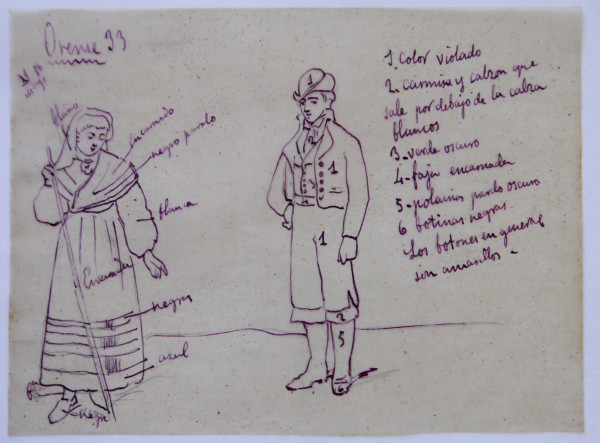 Orense 33
blanco
encarnado
negro pardo
blanca
Encarnado
negras
azul
negro
1
2
1
3
4
1
2
5
6
1. Color violado
2. Camisa y calzon que
sale por debajo de la calza
blancos
3 - verde oscuro
4 - faja encarnada
5 - polainas pardo oscuro
6 botinas negras.
Los botones en general
son amarillos -